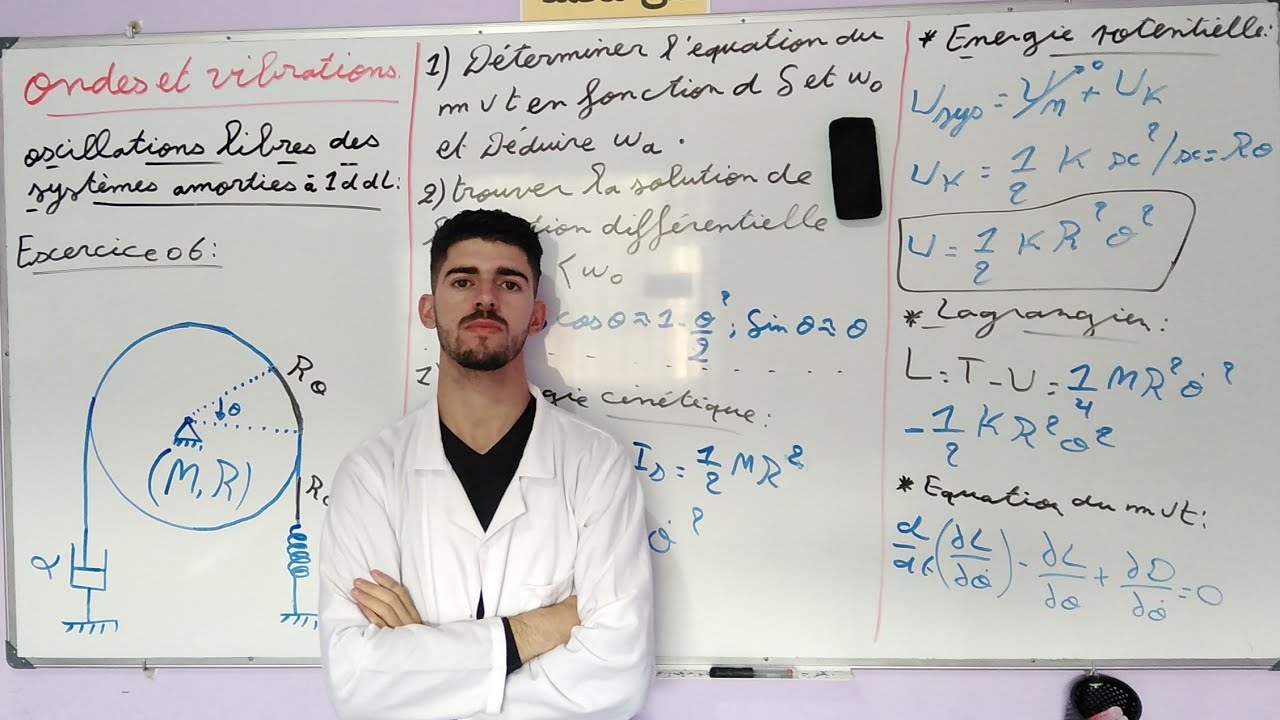 ondes et vibrations.
oscillations libres des
systèmes amorties à 1ddL:
Exercice 06:
Rθ
θ
(M, R)
α
1) Déterminer l'équation du
mvt en fonction d δ et ω₀
et Déduire ωa.
2) trouver la solution de
différentielle
< ω₀
cosθ ≈ 1 - θ²/2 ; sinθ ≈ θ
cinétique:
I_D = 1/2 MR²
θ̇²
* Energie potentielle:
U_sys = U_M + U_K
0
U_K = 1/2 K x² / x = Rθ
U = 1/2 K R² θ²
* Lagrangien:
L = T - U = 1/4 MR² θ̇²
- 1/2 K R² θ²
* Equation du mvt:
d/dt (∂L/∂θ̇) - ∂L/∂θ + ∂D/∂θ̇ = 0